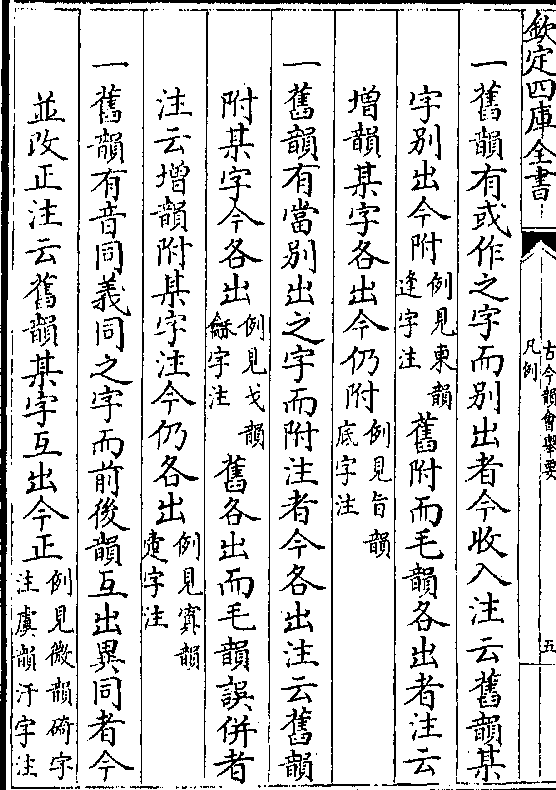 欽定四庫全書
古今韻會舉要
凡例
五
一舊韻有或作之字而別出者今收入注云舊韻某
字別出今附例見東韻逢字注舊附而毛韻各出者注云
增韻某字各出今仍附例見旨韻底字注
一舊韻有當別出之字而附注者今各出注云舊韻
附某字今各出例見戈韻龢字注舊各出而毛韻誤併者
注云增韻附某字注今仍各出例見寘韻字注
一舊韻有音同義同之字而前後韻互出異同者今
並改正注云舊韻某字互出今正例見微韻碕字注虞韻汙字注